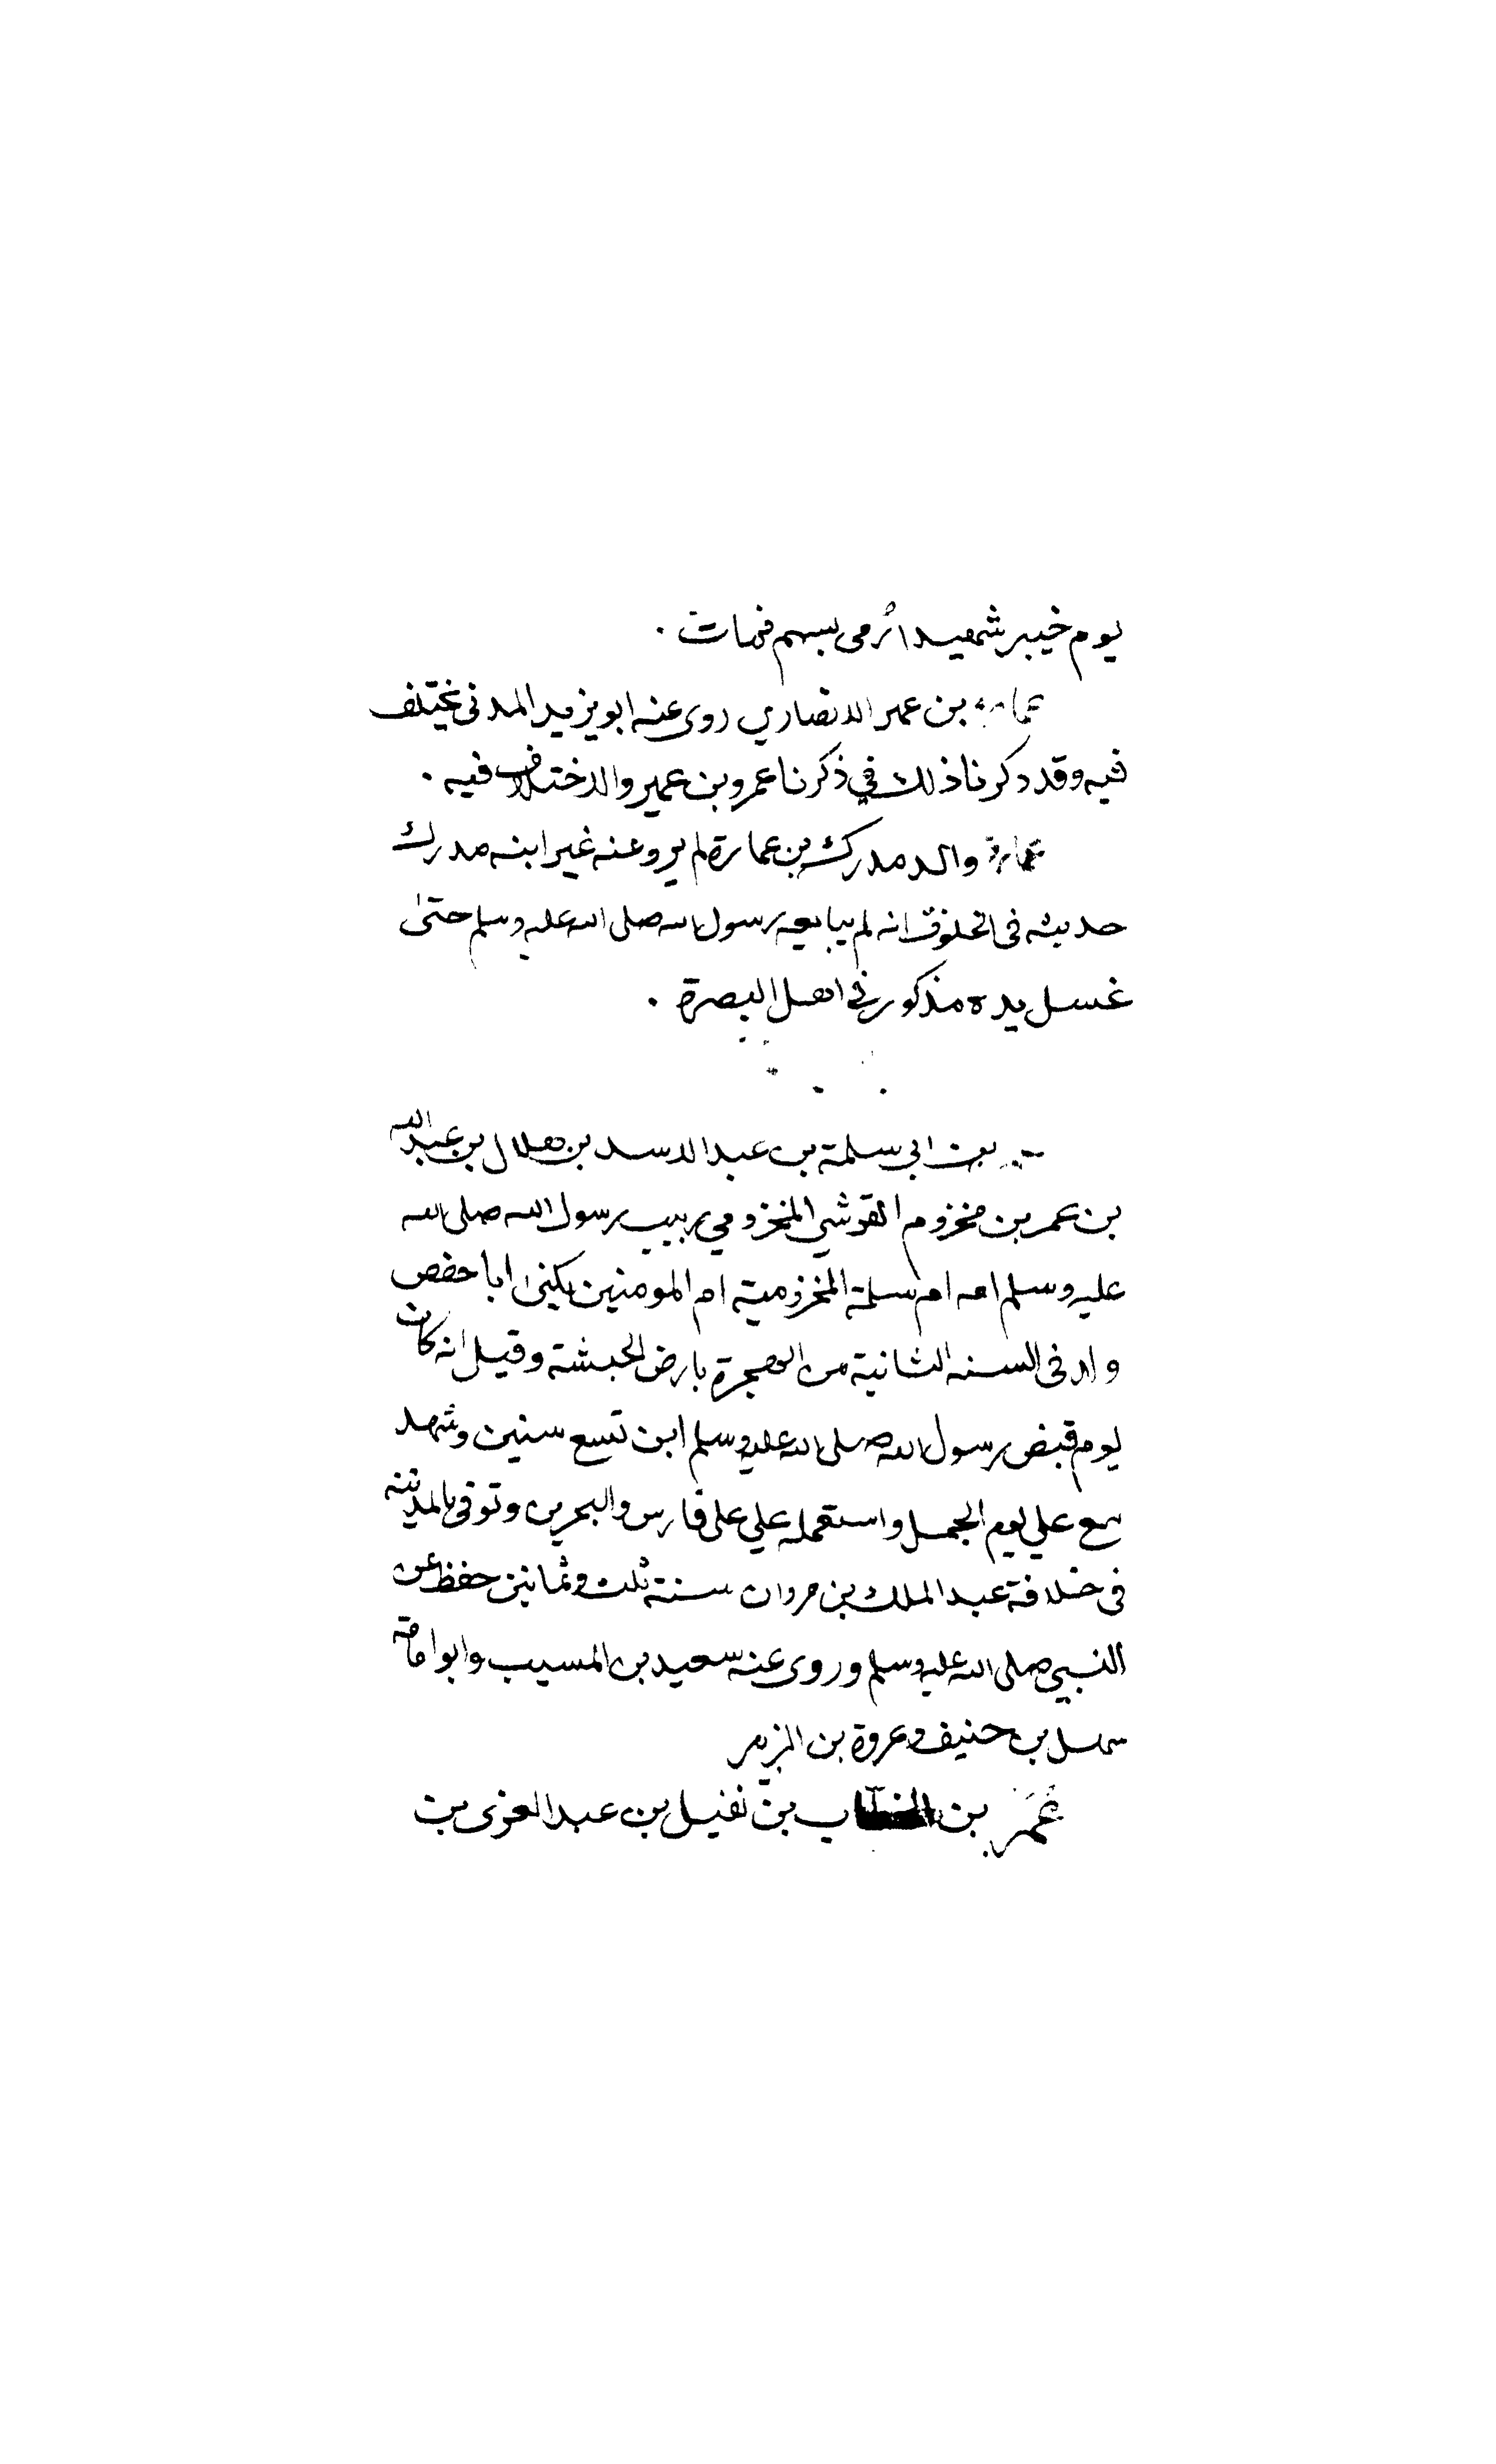 يوم خيبر شهيدا رمى بسهم فمات .
عمارة بن عمير الانصاري روى عنه ابو يزيد المدنى يختلف
فيه وقد ذكرنا ذلك في ذكرنا عمرو بن عمير والاختلاف فيه .
عمارة والد مدرك بن عمارة لم يرو عنه غير ابنه مدرك
حديثه فى الخلوق انه لم يبايعه رسول الله صلى الله عليه وسلم حتى
غسل يده مذكور في اهل البصرة .
بن ابي سلمة بن عبد الاسد بن هلال بن عبد الله
بن عمر بن مخزوم القرشي المخزومي ربيب رسول الله صلى الله
عليه وسلم امه ام سلمة المخزومية ام المومنين يكنى ابا حفص
ولد فى السنه الثانية من الهجرة بارض الحبشة وقيل انه كان
يوم قبض رسول الله صلى الله عليه وسلم ابن تسع سنين وشهد
مع علي يوم الجمل واستعمله علي على فارس والبحرين وتوفى بالمدينه
فى خلافة عبد الملك بن مروان سنة ثلث وثمانين حفظ عن
النبي صلى الله عليه وسلم وروى عنه سعيد بن المسيب وابو امامة
سهل بن حنيف وعروة بن الزبير
عمر بن الخطاب بن نفيل بن عبد العزى بن